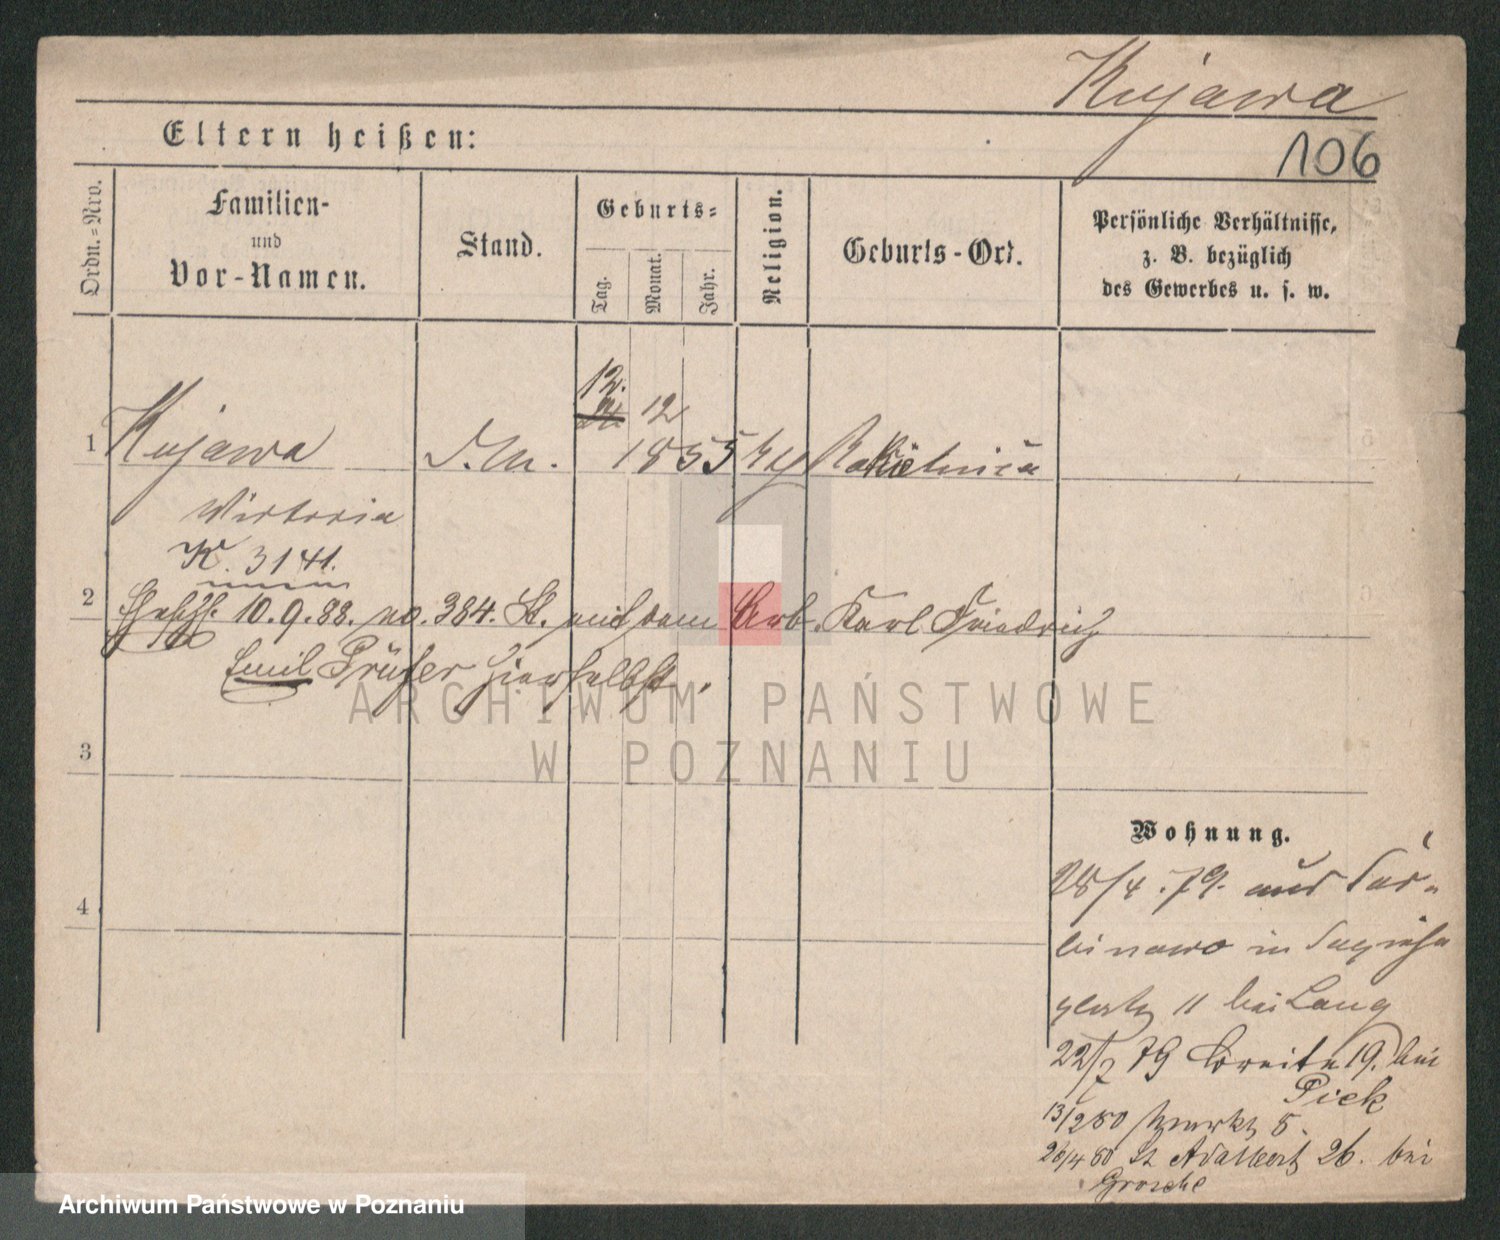 Kujawa
106
Eltern heißen:
Ordn.=Nro.
Familien-
und
Vor-Namen.
Stand.
Geburts=
Tag.
Monat.
Jahr.
Religion.
Geburts-Ort.
Persönliche Verhältnisse,
z. B. bezüglich
des Gewerbes u. s. w.
12.
12
1 Kujawa 1855
Victoria
K. 3141.
2 10.9.88. no. 384. St. mit dem Arb. Karl Friedrich
Emil Prüfer hierselbst.
ARCHIWUM PAŃSTWOWE
W POZNANIU
3
Wohnung.
28/4.79. aus
4
in Sapieha
platz 11 bei Lang
22/7 79 Breite 19. bei
Piek
13/2 80 5.
26/4 80 St Adalbert 26. bei
Grosche
Archiwum Państwowe w Poznaniu